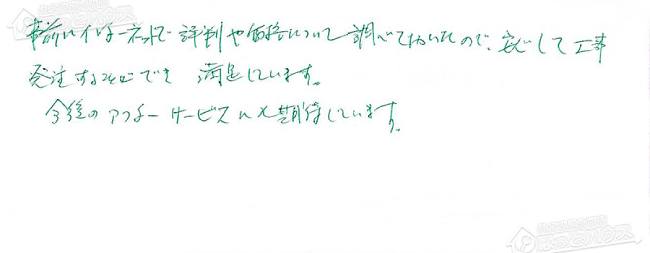 事前にインターネットで評判や価格について調べておいたので、安心して工事
発注することができ 満足しています。
今後のアフターサービスにも期待しています。